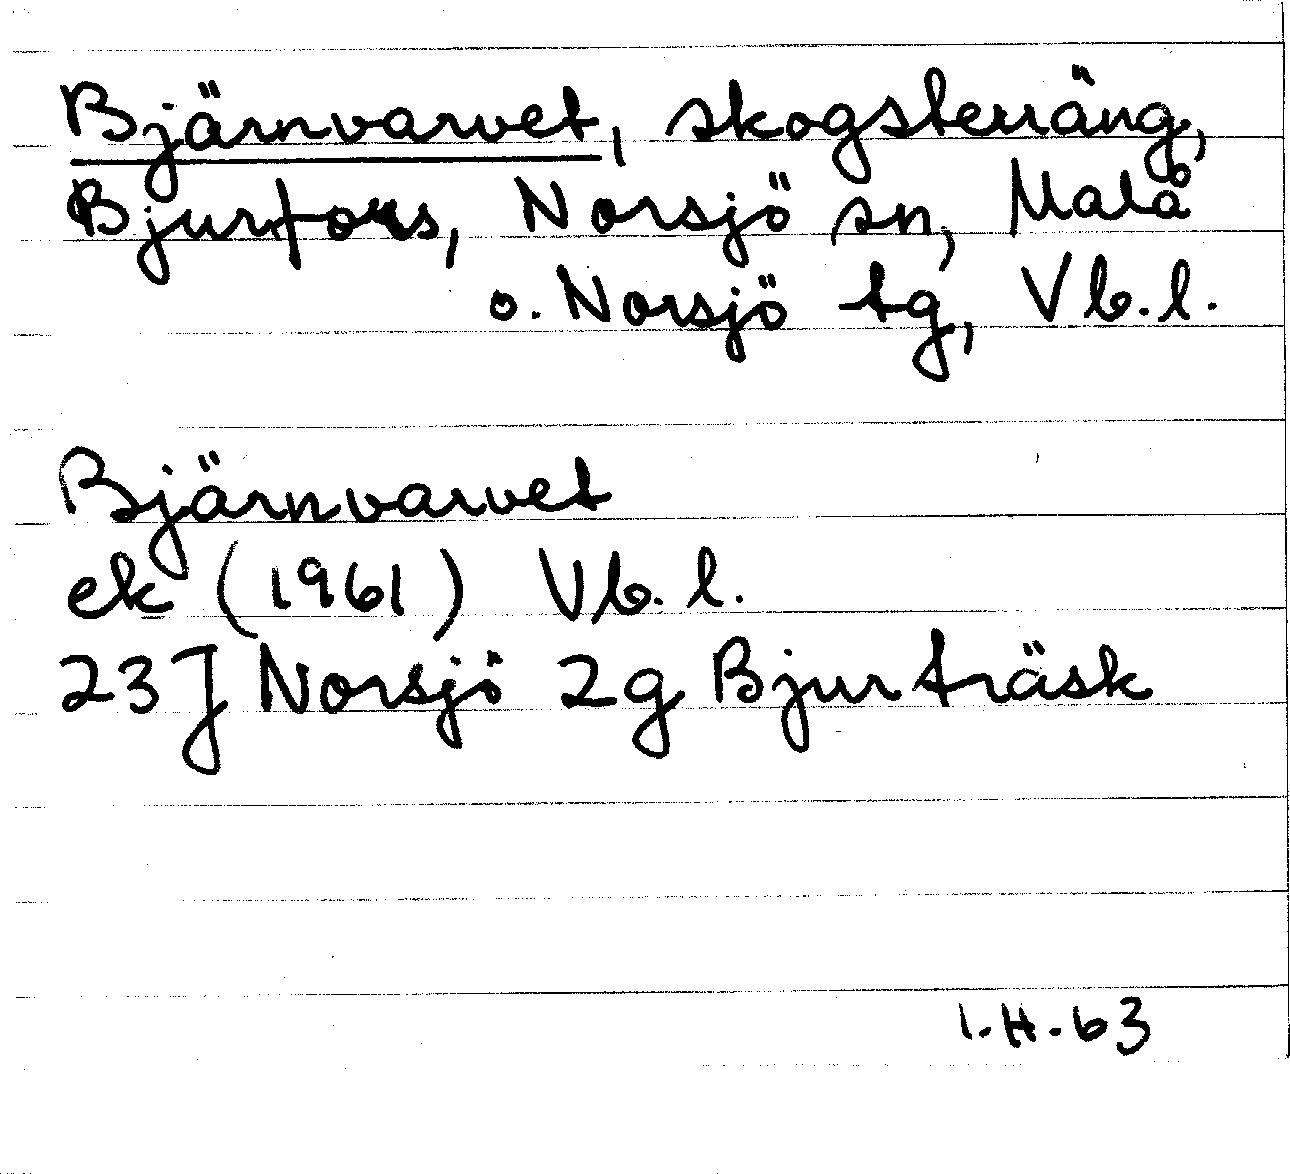 Bjärnvarvet, skogsterräng,
Bjurfors, Norsjö sn, Malå
o. Norsjö tg, Vb. l.
Bjärnvarvet
ek (1961) Vb. l.
23J Norsjö 2g Bjurträsk
I.H.63